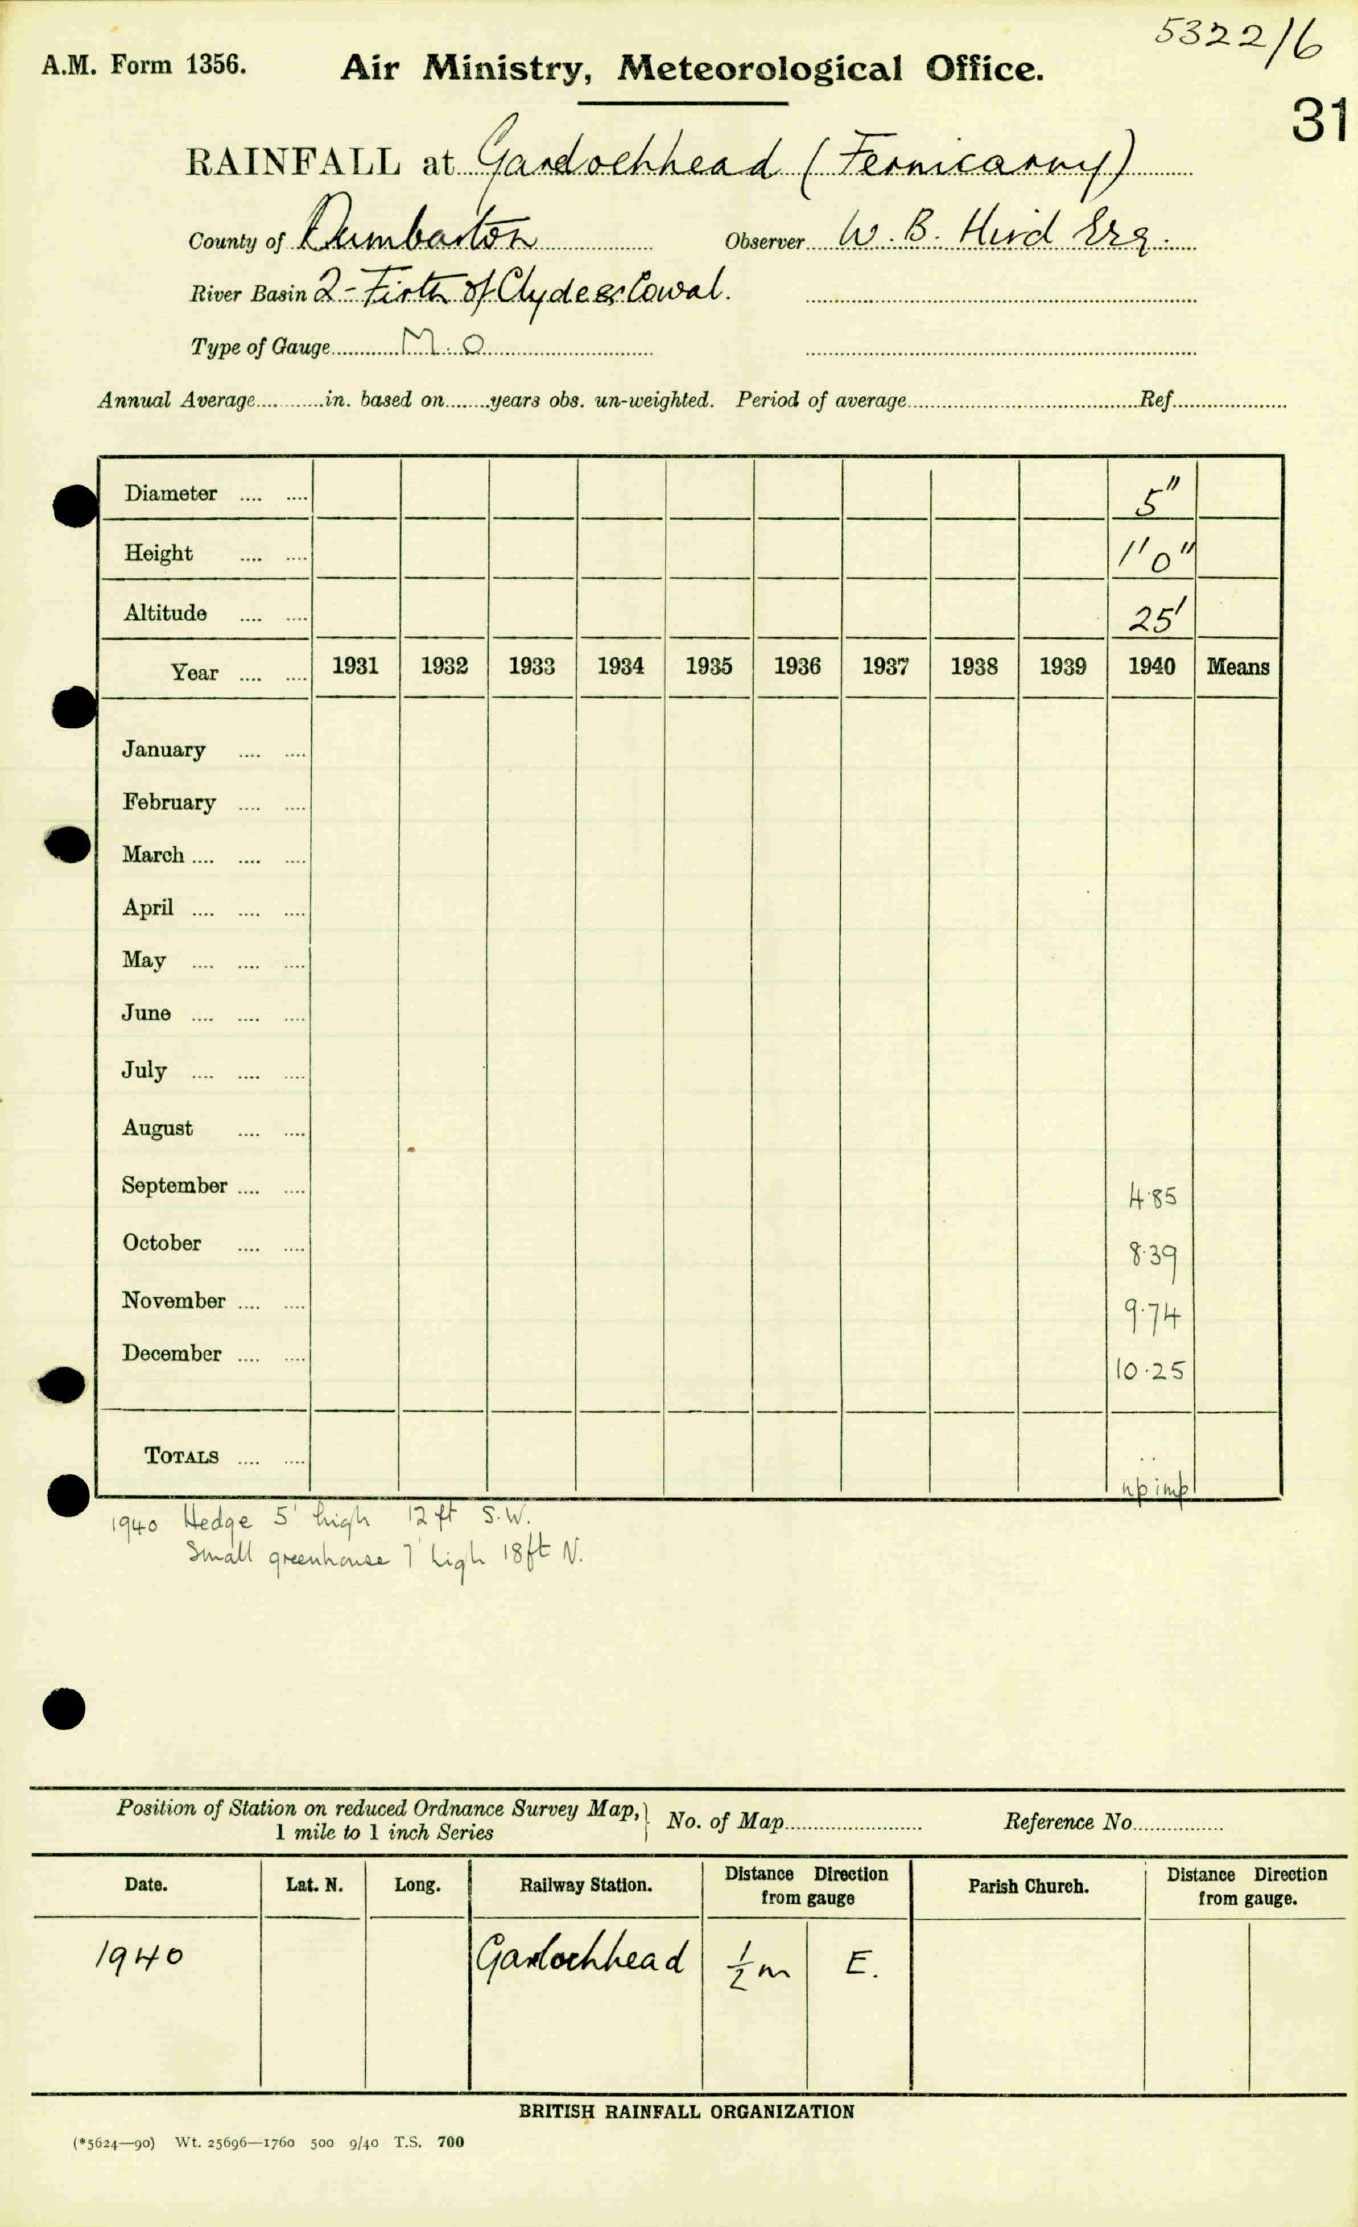 5322/6
A.M. Form 1356. Air Ministry, Meteorological Office.
31
RAINFALL at Garelochhead (Fernicarry)
County of Dumbarton Observer W. B. Hird Esq.
River Basin 2 - Firth of Clyde & Cowal.
Type of Gauge M.O
Annual Average in. based on years obs. un-weighted. Period of average Ref.
Diameter 5"
Height 1'0"
Altitude 25'
Year 1931 1932 1933 1934 1935 1936 1937 1938 1939 1940 Means
January
February
March
April
May
June
July
August
September 4.85
October 8.39
November 9.74
December 10.25
TOTALS ..
np imp
1940 Hedge 5' high 12 ft S.W.
Small greenhouse 7' high 18ft N.
Position of Station on reduced Ordnance Survey Map, 1 mile to 1 inch Series } No. of Map Reference No.
Date. Lat. N. Long. Railway Station. Distance Direction from gauge Parish Church. Distance Direction from gauge.
1940 Garelochhead ½ m E.
BRITISH RAINFALL ORGANIZATION
(*5624—90) Wt. 25696—1760 500 9/40 T.S. 700